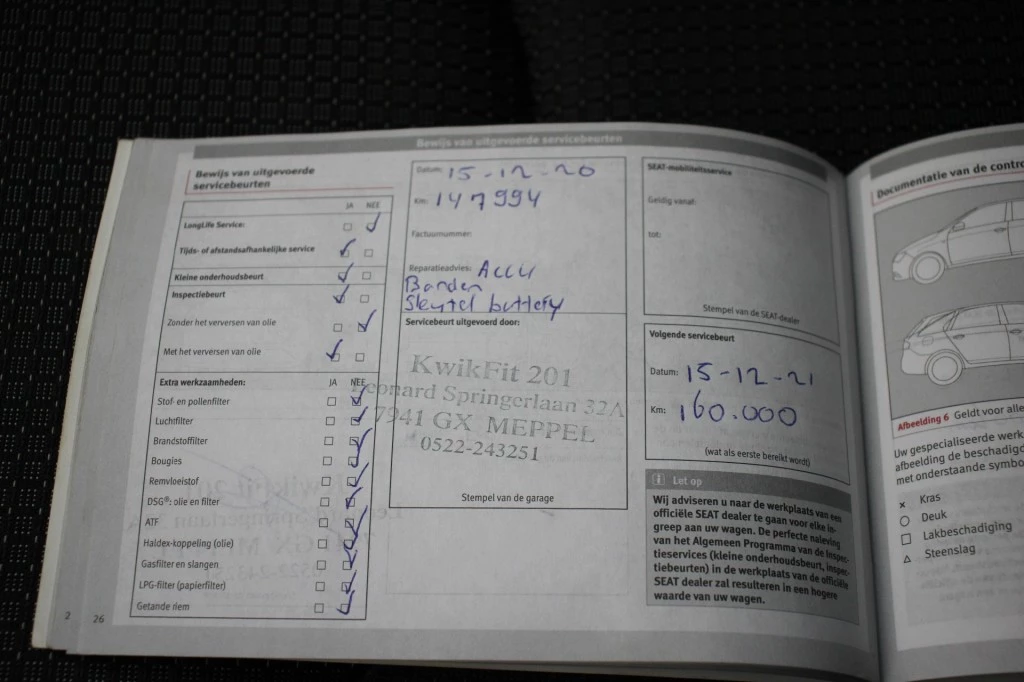 Bewijs van uitgevoerde servicebeurten
Bewijs van uitgevoerde
servicebeurten
JA NEE
LongLife Service:
Tijds- of afstandsafhankelijke service
Kleine onderhoudsbeurt
Inspectiebeurt
Zonder het verversen van olie
Met het verversen van olie
Extra werkzaamheden: JA NEE
Stof- en pollenfilter
Luchtfilter
Brandstoffilter
Bougies
Remvloeistof
DSG®: olie en filter
ATF
Haldex-koppeling (olie)
Gasfilter en slangen
LPG-filter (papierfilter)
Getande riem
2 26
Datum: 15-12-20
Km: 147994
Factuurnummer:
Reparatieadvies: Accu
Banden
Sleutel battery
Servicebeurt uitgevoerd door:
KwikFit 201
Leonard Springerlaan 32A
7941 GX MEPPEL
0522-243251
Stempel van de garage
SEAT-mobiliteitsservice
Geldig vanaf:
tot:
Stempel van de SEAT-dealer
Volgende servicebeurt
Datum: 15-12-21
Km: 160.000
(wat als eerste bereikt wordt)
i Let op
Wij adviseren u naar de werkplaats van een
officiële SEAT dealer te gaan voor elke in-
greep aan uw wagen. De perfecte naleving
van het Algemeen Programma van de Inspec-
tieservices (kleine onderhoudsbeurt, inspec-
tiebeurten) in de werkplaats van de officiële
SEAT dealer zal resulteren in een hogere
waarde van uw wagen.
Documentatie van de contro
Afbeelding 6 Geldt voor alle
Uw gespecialiseerde werk
afbeelding de beschadig
met onderstaande symbo
x Kras
Deuk
Lakbeschadiging
Steenslag